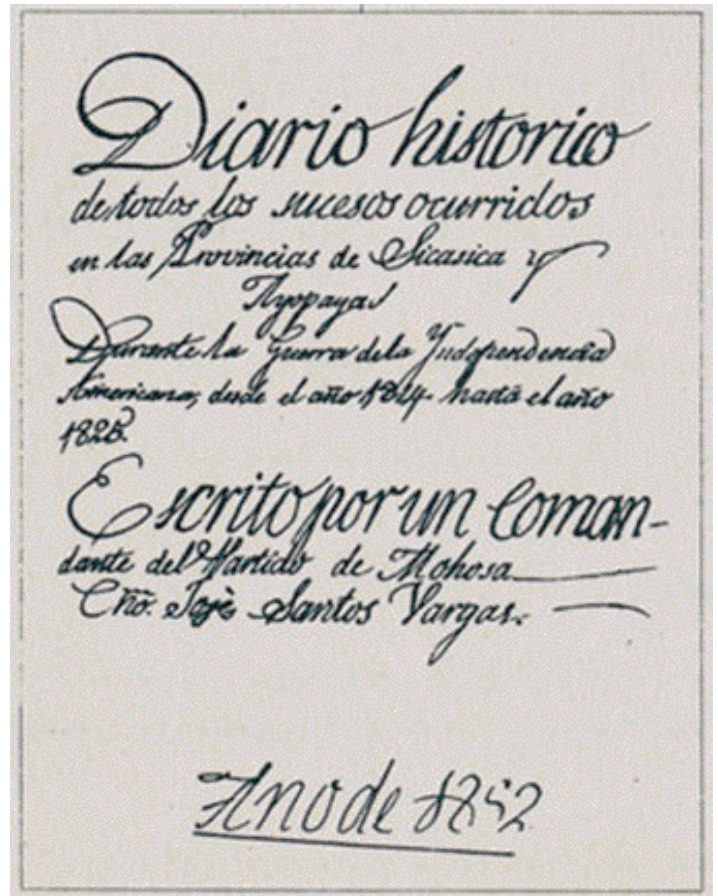 Diario historico
de todos los sucesos ocurridos
en las Provincias de Sicasica y
Ayopaya
Durante la Guerra de la Yndependencia
Americana, desde el año 1814 hasta el año
1825.
Escrito por un Coman-
dante del Partido de Mohosa
Cño. José Santos Vargas.
Ano de 1852